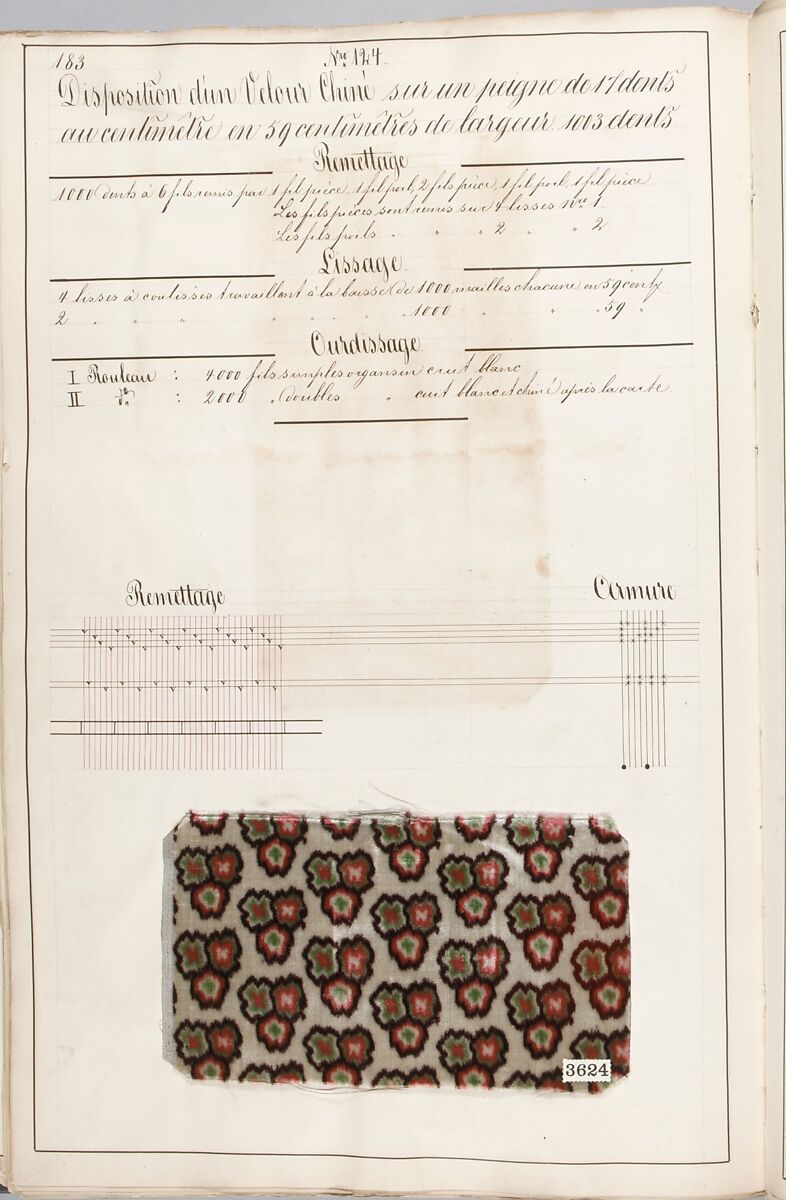 183
Nro 124.
Disposition d'un Velour Chiné sur un peigne de 17 dents
au centimêtre en 59 centimêtres de largeur 1003 dents
Remettage
1000 dents à 6 fils remis par 1 fil pièce, 1 fil poil, 2 fils pièce, 1 fil poil, 1 fil pièce.
Les fils pièces sont remis sur 4 lisses Nro 1.
Les fils poils " " " 2 " " 2
Lissage.
4 lisses à coulisses travaillant à la baisse de 1000 mailles chacune, en 59 cent
2 " " " " " " " 1000 " " " 59 "
Ourdissage.
I Rouleau : 4000 fils simples organsin cuit blanc
II do : 2000 " doubles " cuit blanc et chiné après la carte.
Remettage
Armure
3624